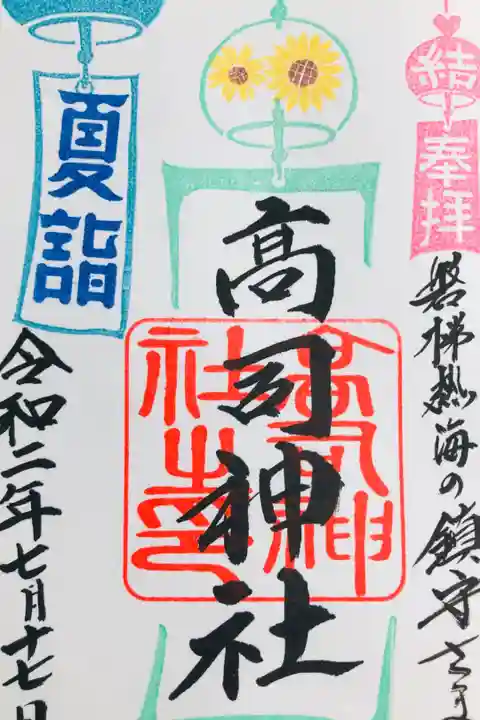 結
奉拝
磐梯熱海の鎮守さま
高司神社
高司神社之印
夏詣
令和二年七月十七日